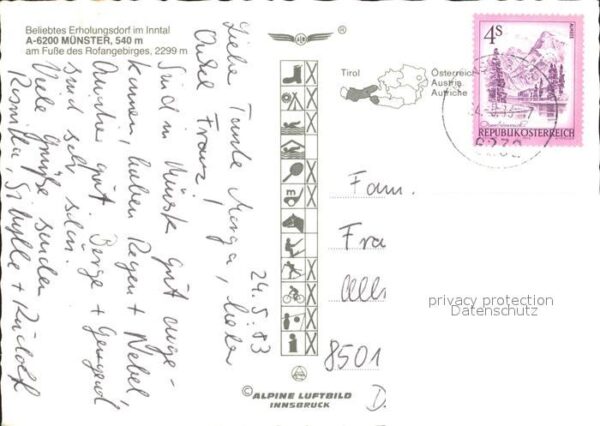 Beliebtes Erholungsdorf im Inntal
A-6200 MÜNSTER, 540 m
am Fuße des Rofangebirges, 2299 m
24.5.83
Liebe Tante Marga, lieber
Onkel Franz!
Sind in Münster gut ange-
kommen, haben Regen + Nebel,
Quartier gut. Berge + Gegend
sind sehr schön.
Viele Grüße senden
Sibylle + Rudolf
Tirol
Österreich
Austria
Autriche
4S
REPUBLIK ÖSTERREICH
Fam.
Fra
8501
D
privacy protection
Datenschutz
© ALPINE LUFTBILD
INNSBRUCK